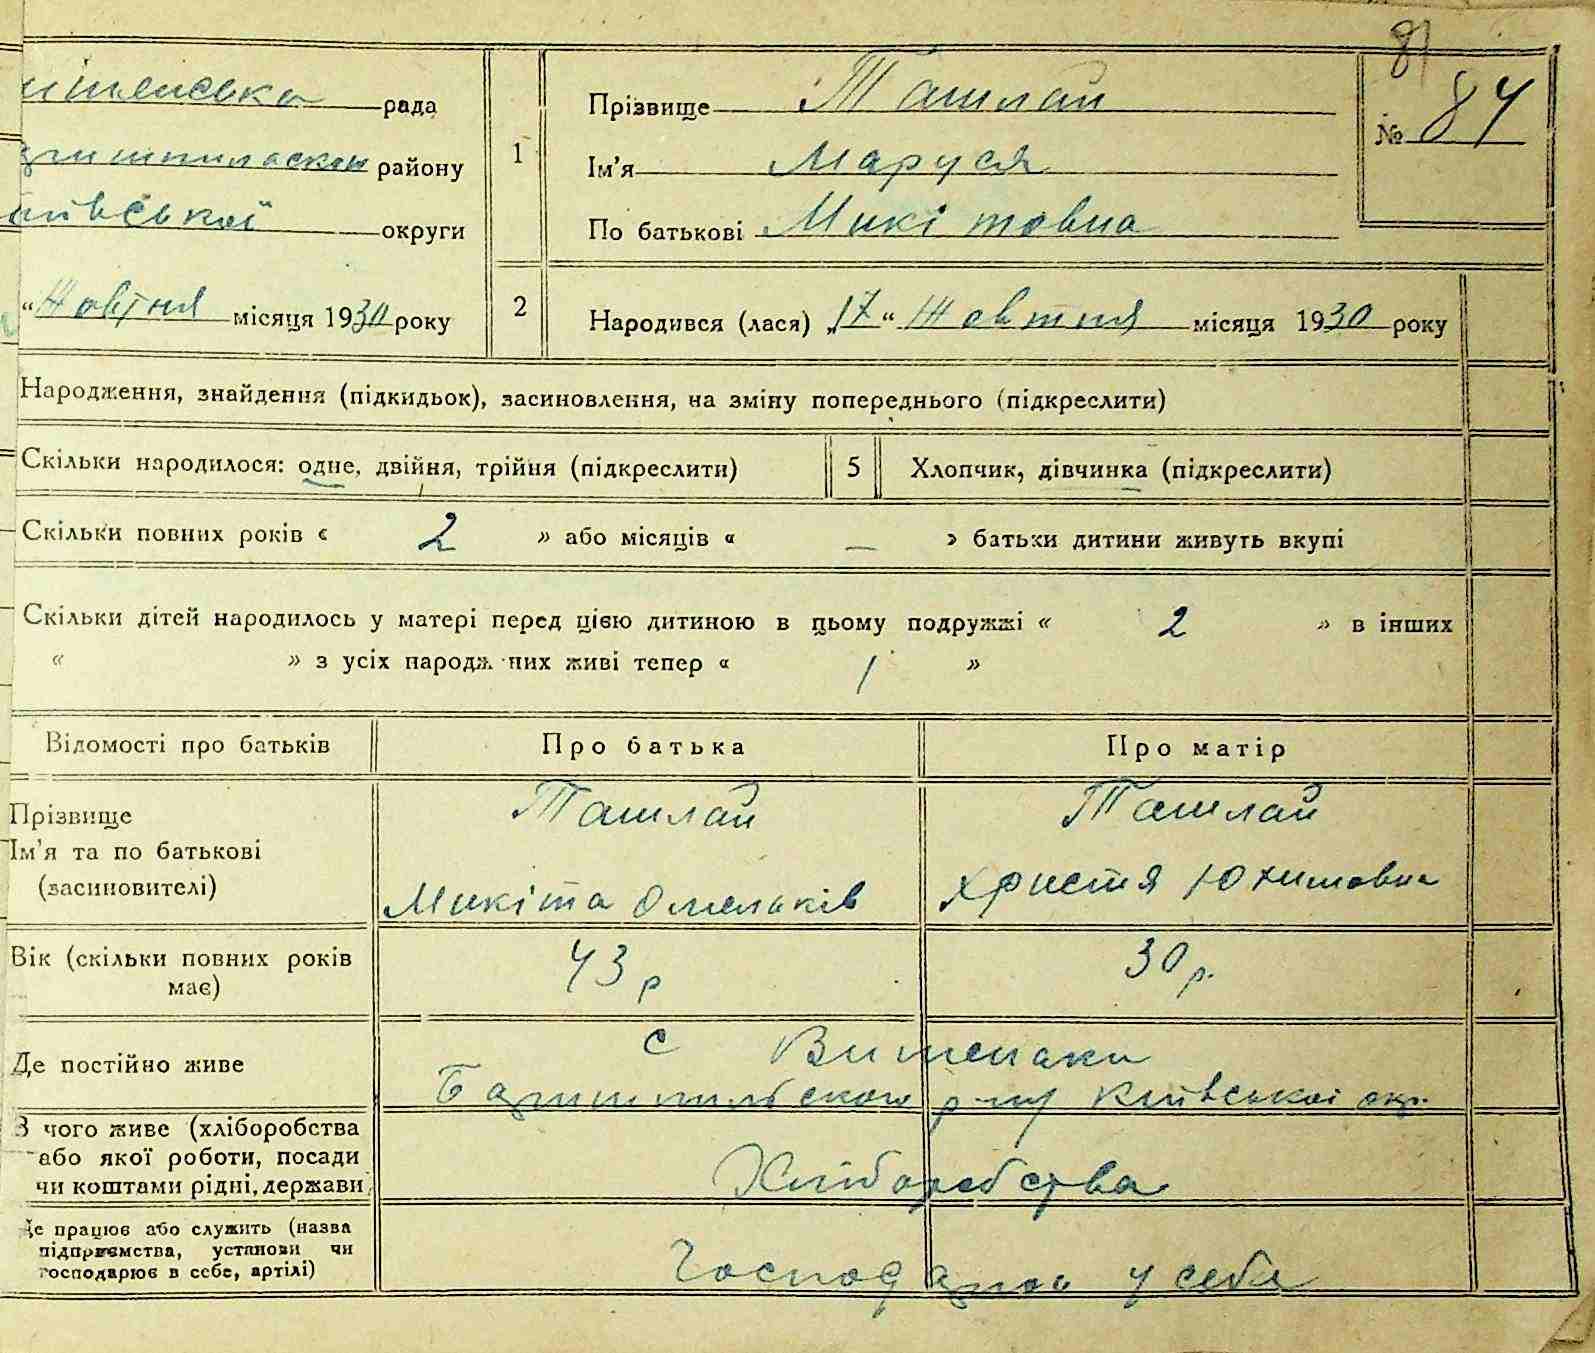 81
рада
району
округи
"Жовтня місяця 1930 року
1
Прізвище Ташлай
Ім'я Маруся
По батькові Микітовна
№ 84
2
Народився (лася) „17“ Жовтня місяця 1930 року
Народження, знайдення (підкидьок), засиновлення, на зміну попереднього (підкреслити)
Скільки народилося: одне, двійня, трійня (підкреслити)
5
Хлопчик, дівчинка (підкреслити)
Скільки повних років « 2 » або місяців « — » батьки дитини живуть вкупі
Скільки дітей народилось у матері перед цією дитиною в цьому подружжі « 2 » в інших
« » з усіх народж них живі тепер « 1 »
Відомості про батьків
Про батька
Про матір
Прізвище
Ім'я та по батькові
(засиновителі)
Ташлай
Микіта Омельків
Ташлай
Христя Юхимовна
Вік (скільки повних років
має)
43 р
30 р.
Де постійно живе
с Вишеньки
Баришпільского р-ну Київської окр.
З чого живе (хліборобства
або якої роботи, посади
чи коштами рідні, держави
Хліборобства
Де працює або служить (назва
підприємства, установи чи
господарює в себе, артілі)
у себе